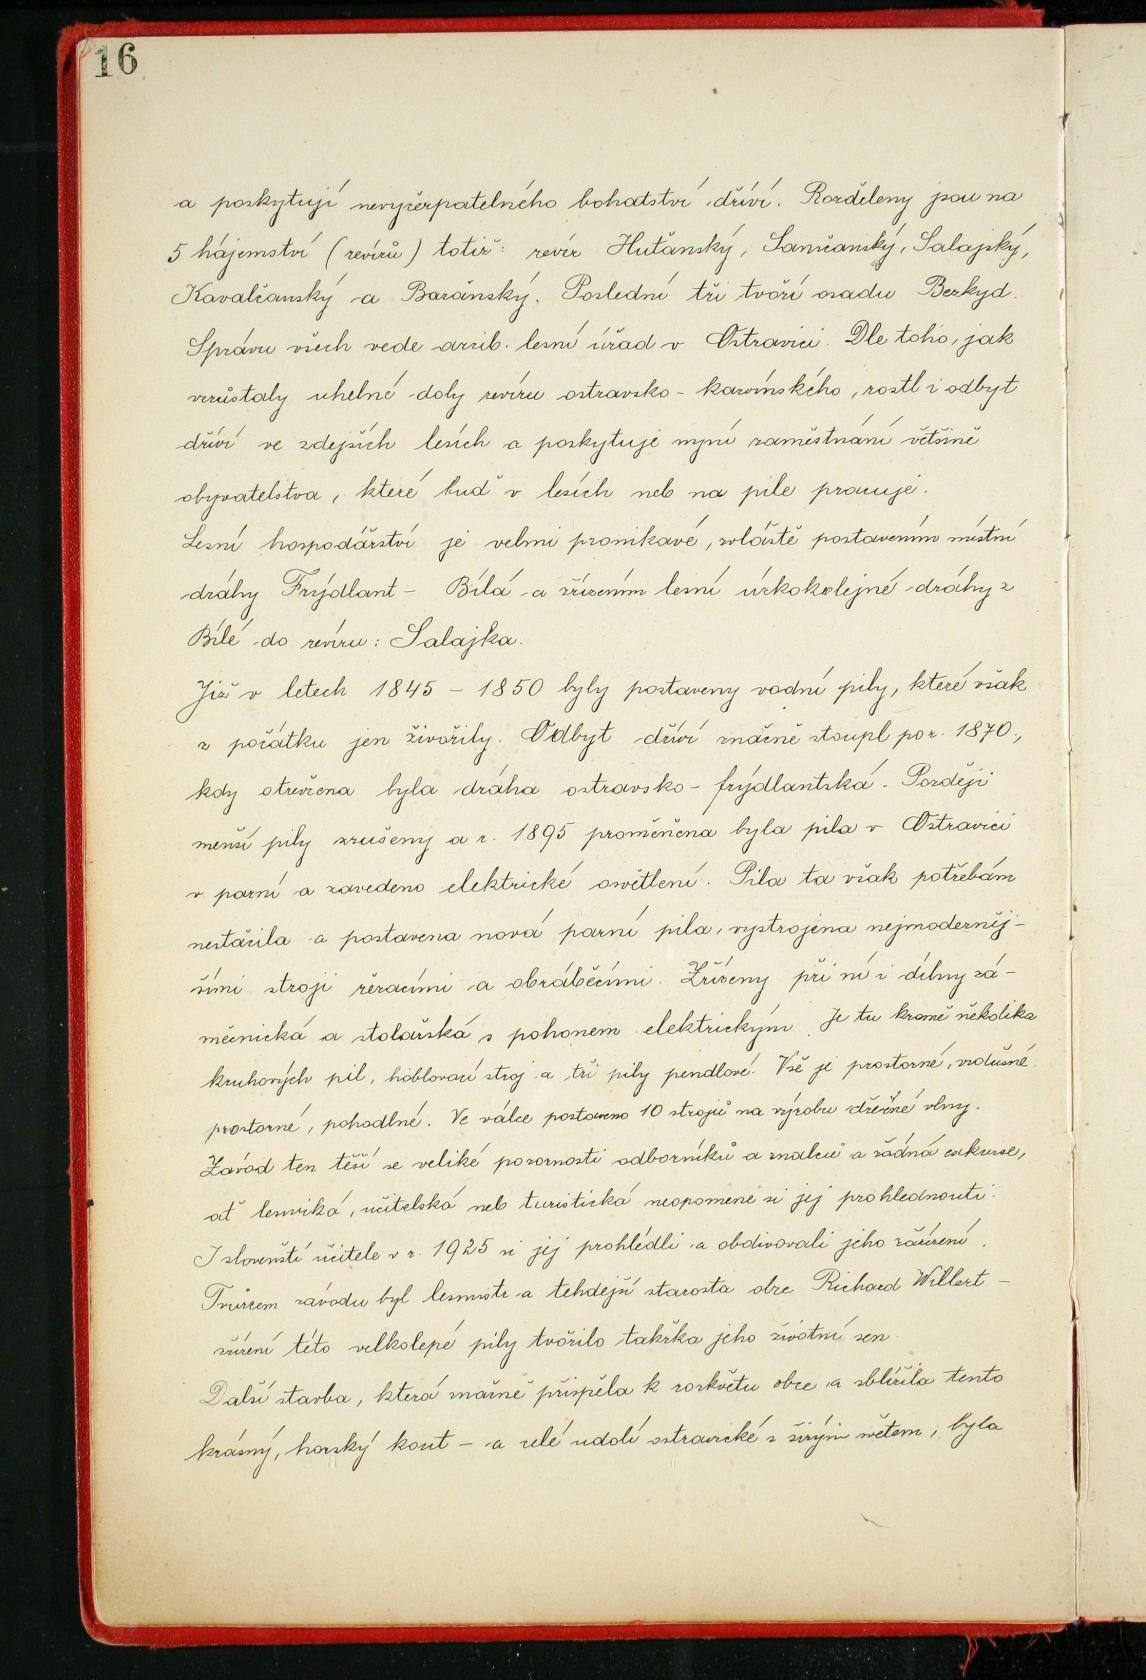 16
a poskytují nevyčerpatelného bohatství dříví. Rozděleny jsou na
5 hájemství (revírů) totiž: revír Huťanský, Samčanský, Salajský,
Kavalčanský a Baranský. Poslední tři tvoří osadu Bezkyd.
Správu všech vede arcib. lesní úřad v Ostravici. Dle toho, jak
vzrůstaly uhelné doly revíru ostravsko - karvínského, rostl i odbyt
dříví ve zdejších lesích a poskytuje nyní zaměstnání většině
obyvatelstva, které buď v lesích neb na pile pracuje.
Lesní hospodářství je velmi pronikavé, zvláště postavením místní
dráhy Frýdlant - Bílá a zřízením lesní úzkokolejné dráhy z
Bílé do revíru: Salajka.
Již v letech 1845 - 1850 byly postaveny vodní pily, které však
z počátku jen živořily. Odbyt dříví značně stoupl po r. 1870.,
kdy otevřena byla dráha ostravsko - frýdlantská. Později
menší pily zrušeny a r. 1895 proměněna byla pila v Ostravici
v parní a zavedeno elektrické osvětlení. Pila ta však potřebám
nestačila a postavena nová parní pila, vystrojena nejmoderněj-
šími stroji řezacími a obráběcími. Zřízeny při ní i dílny zá-
mečnická a stolařská s pohonem elektrickým. Je tu kromě několika
kruhových pil, hoblovací stroj a tři pily pendlové. Vše je prostorné, vzdušné,
prostorné, pohodlné. Ve válce postaveno 10 strojů na výrobu dřevěné vlny.
Závod ten těší se veliké pozornosti odborníků a znalců a žádná exkurse,
ať lesnická, učitelská neb turistická neopomene si jej prohlédnouti.
I slovenští učitelé v r. 1925 si jej prohlédli a obdivovali jeho zařízení.
Tvůrcem závodu byl lesmistr a tehdejší starosta obce Richard Willert -
zřízení této velkolepé pily tvořilo takřka jeho životní sen.
Další stavba, která značně přispěla k rozkvětu obce a sblížila tento
krásný, horský kout - a celé údolí ostravické s širým světem, byla